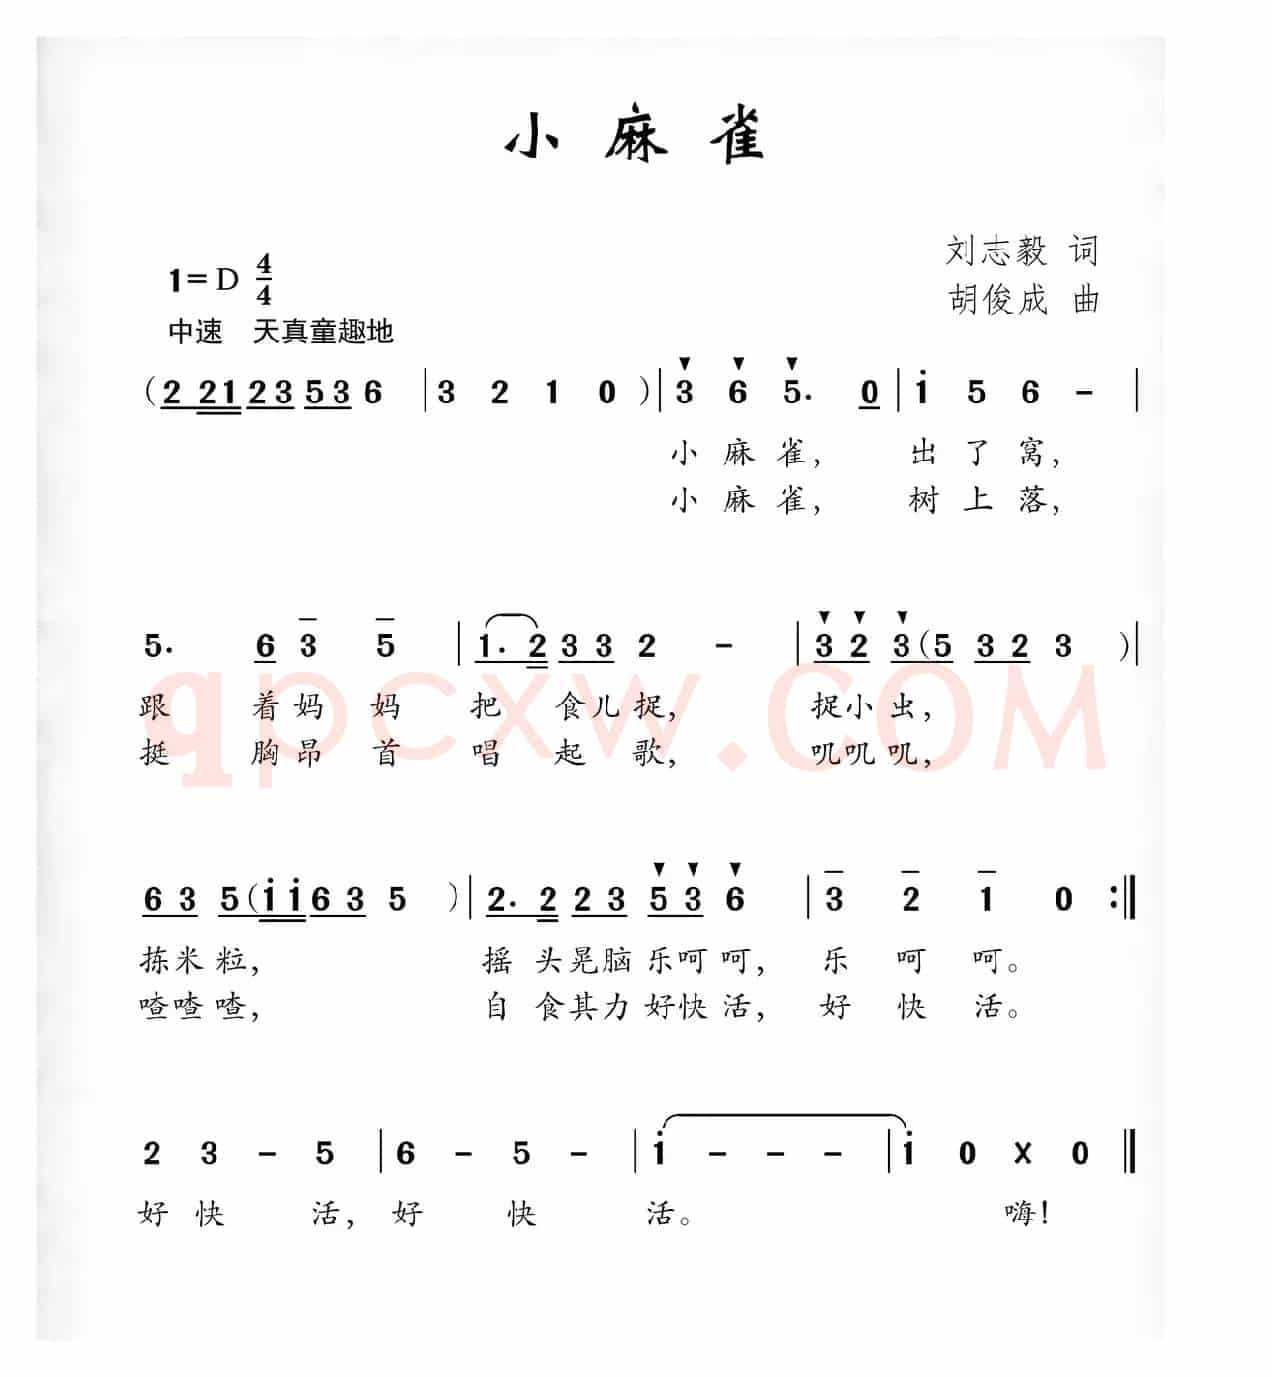 小麻雀
刘志毅 词
1=D 4/4
胡俊成 曲
中速 天真童趣地
(2 21 23 53 6 | 3 2 1 0 ) | 3 6 5. 0 | i 5 6 - |
小 麻 雀, 出 了 窝,
小 麻 雀, 树 上 落,
5. 6 3 5 | 1. 2 33 2 - | 3 2 3 (5 32 3 ) |
跟 着 妈 妈 把 食儿 捉, 捉小 虫,
挺 胸 昂 首 唱 起 歌, 叽叽 叽,
qpcxw.COM
63 5(ii63 5 ) | 2. 2 23 53 6 | 3 2 1 0 :||
拣米 粒, 摇 头晃脑 乐呵 呵, 乐 呵 呵。
喳喳 喳, 自 食其力 好快 活, 好 快 活。
2 3 - 5 | 6 - 5 - | i - - - | i 0 X 0 ||
好 快 活, 好 快 活。 嗨!